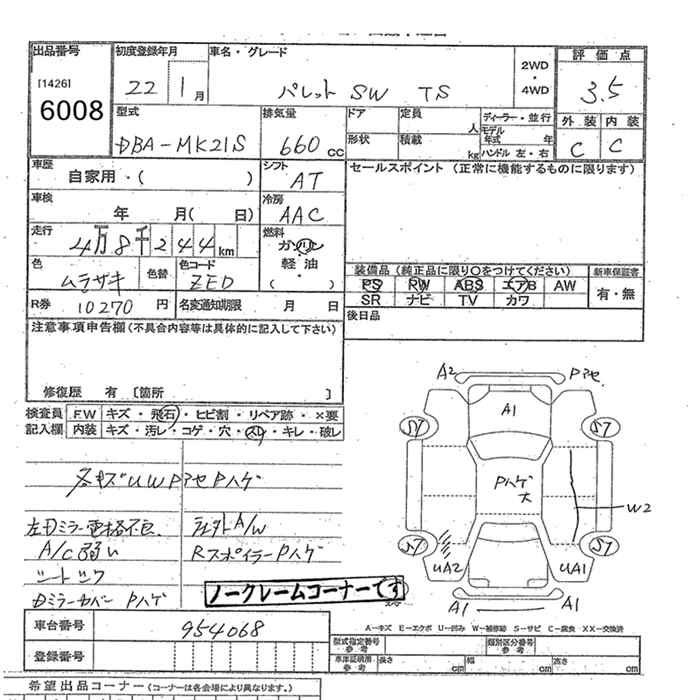 出品番号 初度登録年月 車名・グレード 2WD・4WD 評価点
[1426] 6008 22 1月 パレット SW TS 3.5
型式 排気量 ドア 定員 人 ディーラー・並行 外装 内装
DBA-MK21S 660cc 形状 積載 kg モデル年式 年 ハンドル 左・右 C C
車歴 シフト セールスポイント (正常に機能するものに限ります)
自家用・( ) AT
車検 冷房
年 月( 日) AAC
走行 燃料
4万8千244km ガソリン・軽油
色 色替 色コード ( )
ムラサキ ZED
装備品(純正品に限り○をつけてください) 新車保証書
PS PW ABS エアB AW 有・無
SR ナビ TV カワ
R券 10270円 名変通知期限 月 日 後日品
注意事項申告欄(不具合内容等は具体的に記入して下さい)
修復歴 有 [箇所 ]
検査員 F.W キズ・飛石・ヒビ割・リペア跡・×要
記入欄 内装 キズ・汚レ・コゲ・穴・スリ・キレ・破レ
各キズUWPアセPハゲ
左Dミラー電格不良 社外A/W
A/C弱い RスポイラーPハゲ
シートシワ
DミラーカバーPハゲ
ノークレームコーナーです
A2 Pアセ
A1
S7 S7
Pハゲ
大
W2
S7 S7
UA2 UA1
A1 A1
A-キズ E-エクボ U-凹み W-補修跡 S-サビ C-腐食 XX-交換済
車台番号 954068
登録番号
型式指定番号 参考 類別区分番号 参考
車庫証明用 参考 長さ cm 幅 cm 高さ cm
希望出品コーナー(コーナーは各会場により異なります。)